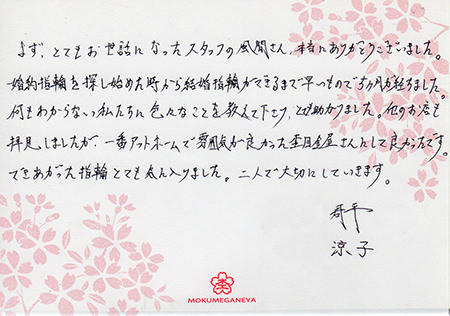 まず、とてもお世話になったスタッフの風間さん、本当にありがとうございました。
婚約指輪を探し始めた時から結婚指輪ができるまで早いもので5ヶ月が経ちました。
何もわからない私たちに色々なことを教えて下さり、とても助かりました。他のお店も
拝見しましたが、一番アットホームで雰囲気が良かった杢目金屋さんにして良かったです。
できあがった指輪とても気に入りました。二人で大切にしていきます。
涼子
MOKUMEGANEYA